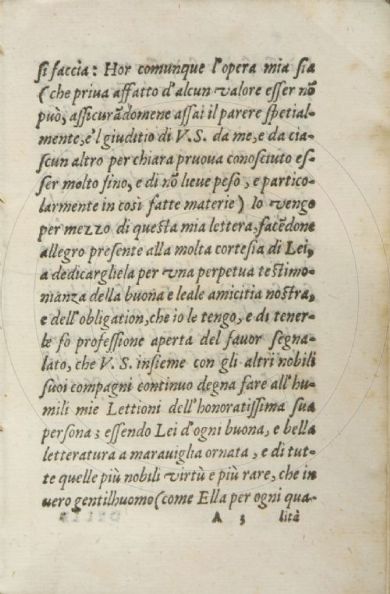 si faccia: Hor comunque l'opera mia sia
(che priva affatto d'alcun valore esser nõ
può, assicurãdomene assai il parere spetial-
mente, e'l giuditio di V.S. da me, e da cia-
scun altro per chiara pruova conosciuto es-
ser molto fino, e di nõ lieve peso, e partico-
larmente in così fatte materie) Io vengo
per mezzo di questa mia lettera, facẽdone
allegro presente alla molta cortesia di Lei,
a dedicargliela per vna perpetua testimo-
nianza della buona e leale amicitia nostra,
e dell'obligation, che io le tengo, e di tener-
le fò professione aperta del favor segna-
lato, che V.S. insieme con gli altri nobili
suoi compagni continuo degna fare all'hu-
mili mie Lettioni dell'honoratissima sua
persona; essendo Lei d'ogni buona, e bella
letteratura a maraviglia ornata, e di tut-
te quelle più nobili virtù e più rare, che in
uero gentilhuomo (come Ella per ogni qua-
A 3 lità